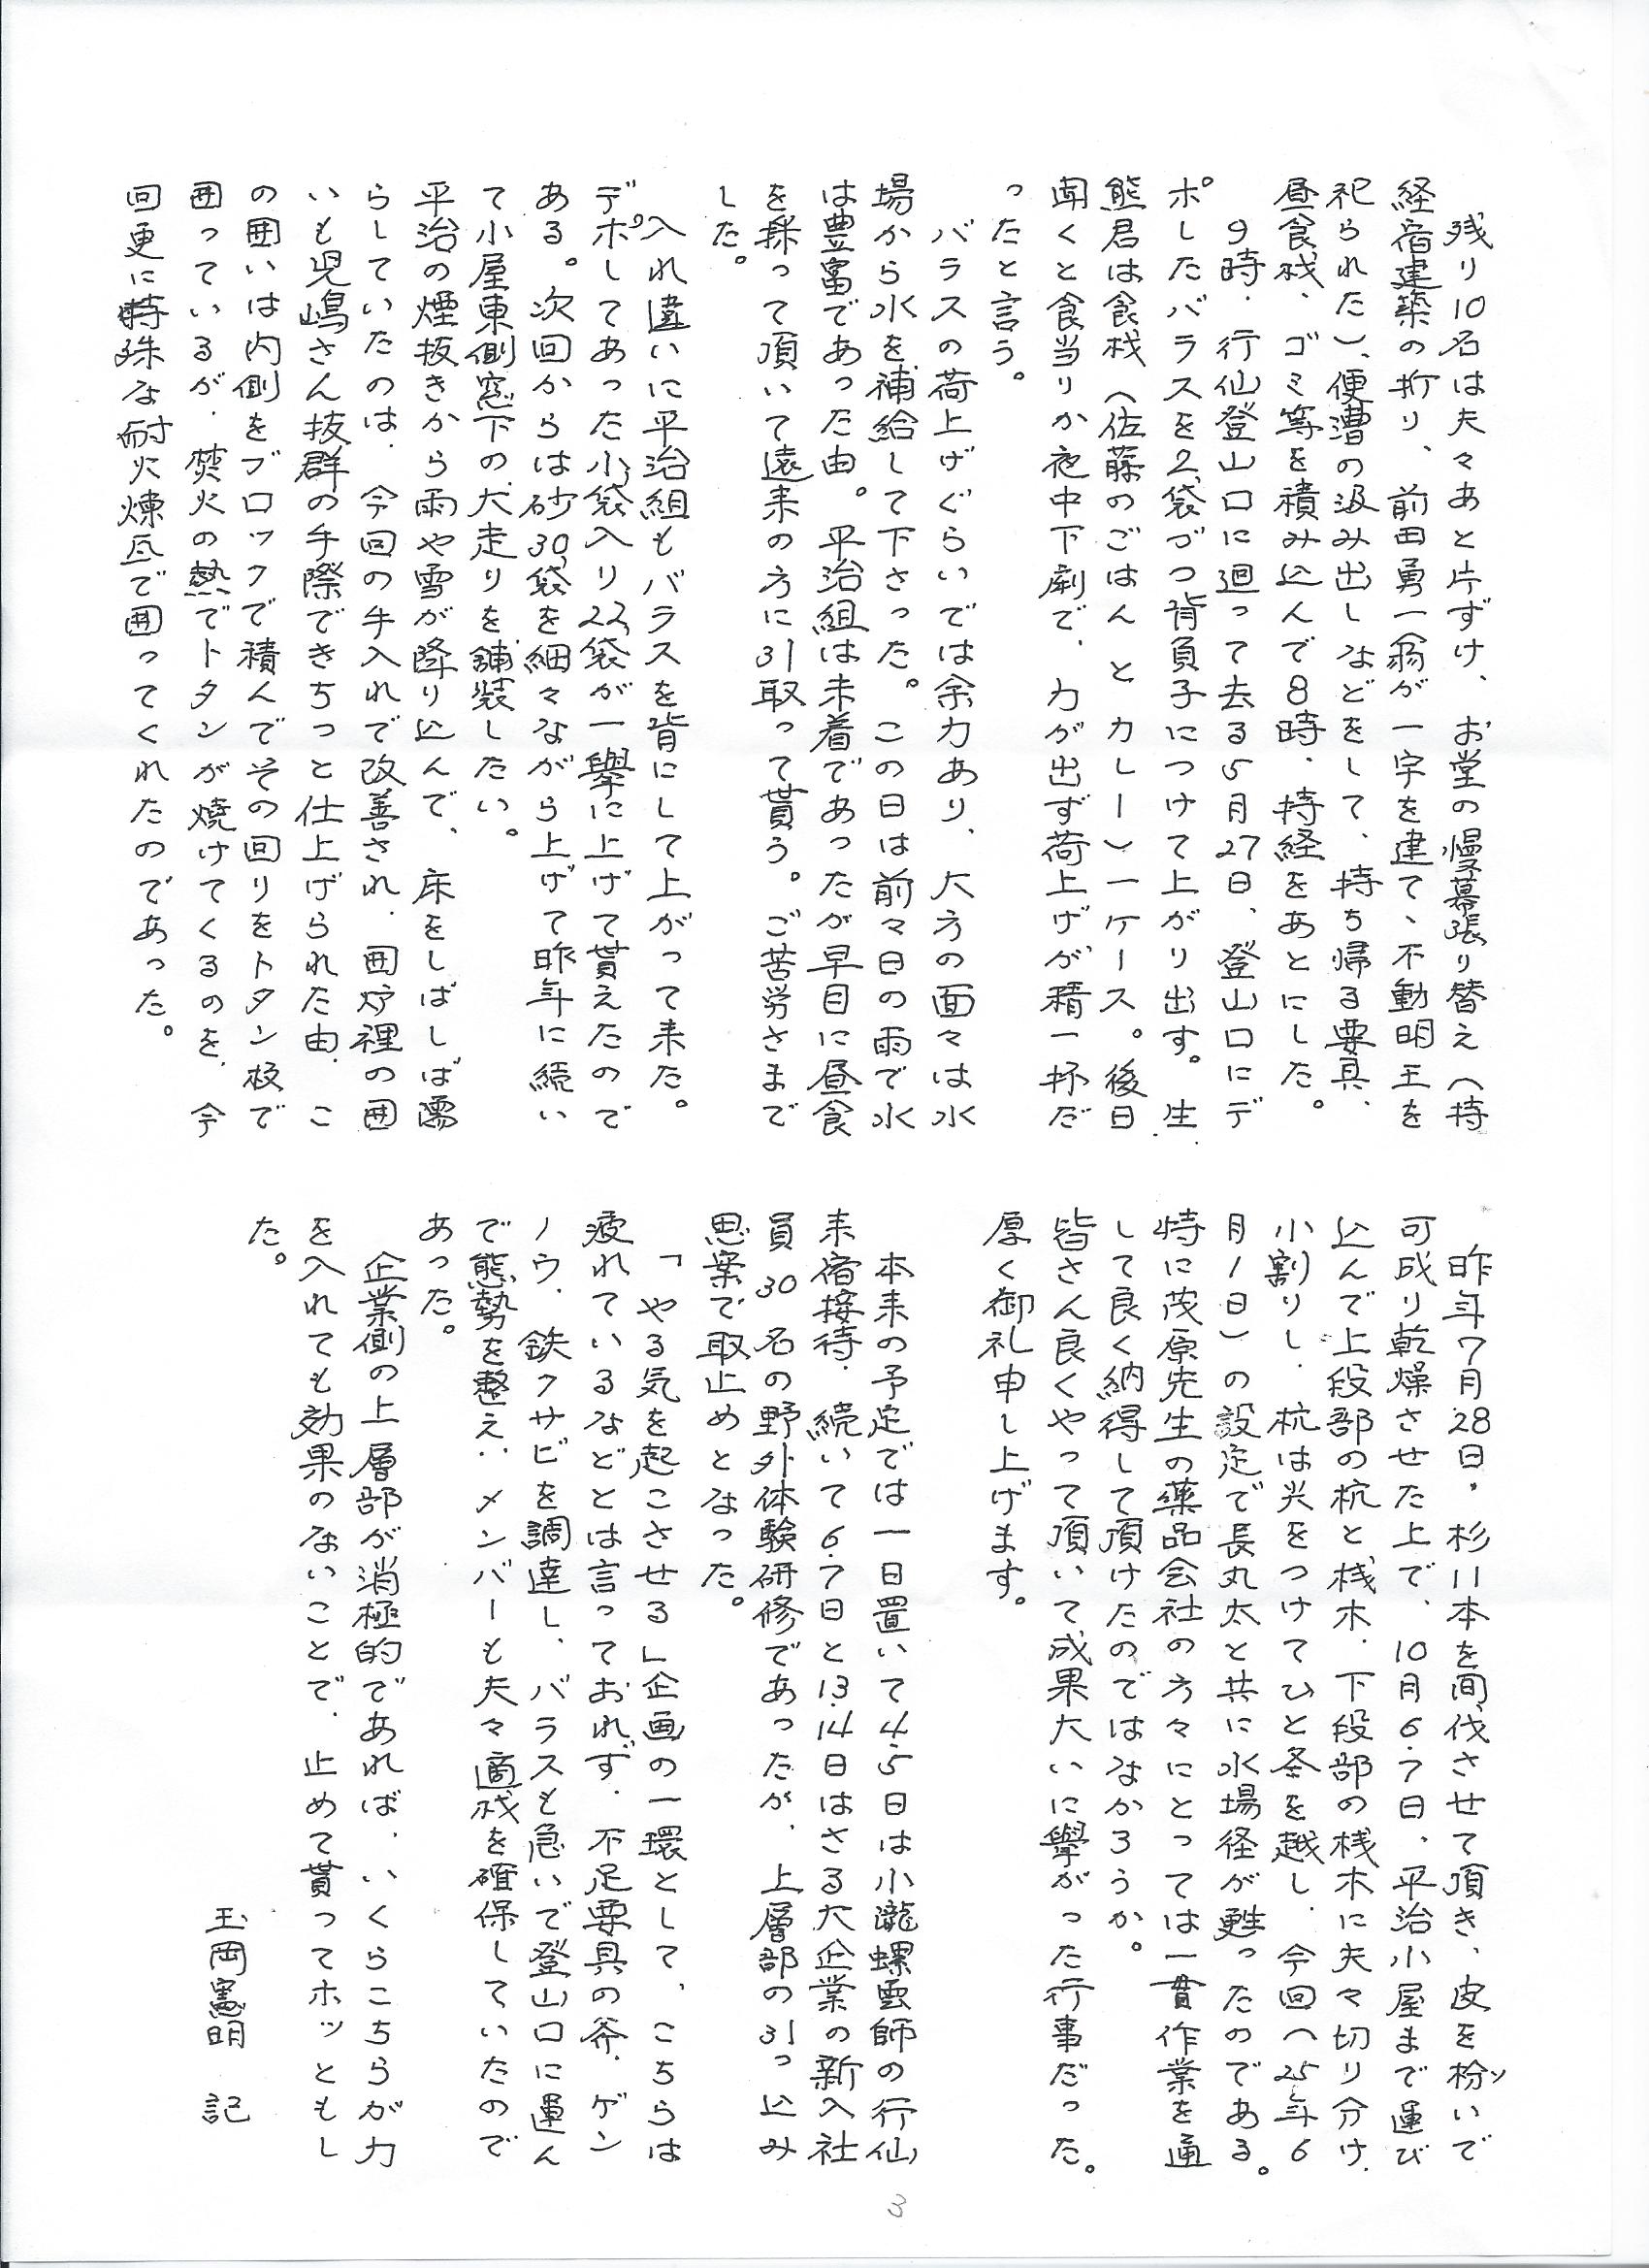 残り10名は夫々あと片ずけ、お堂の慢幕張り替え（持
経宿建築の折り、前田勇一翁が一宇を建て、不動明王を
祀られた）、便漕の汲み出しなどをして、持ち帰る要具、
昼食桟、ゴミ等を積み込んで8時、持経をあとにした。
9時、行仙登山口に廻って去る5月27日、登山口にデ
ポしたバラスを2袋づつ背負子につけて上がり出す。生
熊君は食桟（佐藤のごはん と カレー）一ケース。後日
聞くと食当りか夜中下劇で、力が出ず荷上げが精一杯だ
ったと言う。
バラスの荷上げぐらいでは余力あり、大方の面々は水
場から水を補給して下さった。この日は前々日の雨で水
は豊富であった由。平治組は未着であったが早目に昼食
を採って頂いて遠来の方に引取って貰う。ご苦労さまで
した。
入れ違いに平治組もバラスを背にして上がって来た。
デポしてあった小袋入り22袋が一擧に上げて貰えたので
ある。次回からは砂30袋を細々ながら上げて昨年に続い
て小屋東側窓下の犬走りを舗装したい。
平治の煙抜きから雨や雪が降り込んで、床をしばしば濡
らしていたのは、今回の手入れで改善され、囲炉裡の囲
いも児嶋さん抜群の手際できちっと仕上げられた由、こ
の囲いは内側をブロックで積んでその回りをトタン板で
囲っているが、焚火の熱でトタンが焼けてくるのを、今
回更に特殊な耐火煉瓦で囲ってくれたのであった。
昨年7月28日、杉11本を間伐させて頂き、皮を枌いで
ソ
可成り乾燥させた上で、10月6.7日、平治小屋まで運び
込んで上段部の杭と桟木、下段部の桟木に夫々切り分け、
小割りし、杭は尖をつけてひと冬を越し、今回（25年6
月1日）の設定で長丸太と共に水場径が甦ったのである。
特に茂原先生の薬品会社の方々にとっては一貫作業を通
して良く納得して頂けたのではなかろうか。
皆さん良くやって頂いて成果大いに擧がった行事だった。
厚く御礼申し上げます。
本来の予定では一日置いて4.5日は小瀧螺雲師の行仙
来宿接待、続いて6.7日と13.14日はさる大企業の新入社
員 30 名の野外体験研修であったが、上層部の引っ込み
思案で取止めとなった。
「やる気を起こさせる」企画の一環として、こちらは
疲れているなどとは言っておれず、不足要具の斧、ゲン
ノウ、鉄クサビを調達し、バラスも急いで登山口に運ん
で態勢を整え、メンバーも夫々適桟を確保していたので
あった。
企業側の上層部が消極的であれば、いくらこちらが力
を入れても効果のないことで、止めて貰ってホッともし
た。
玉岡憲明 記
3